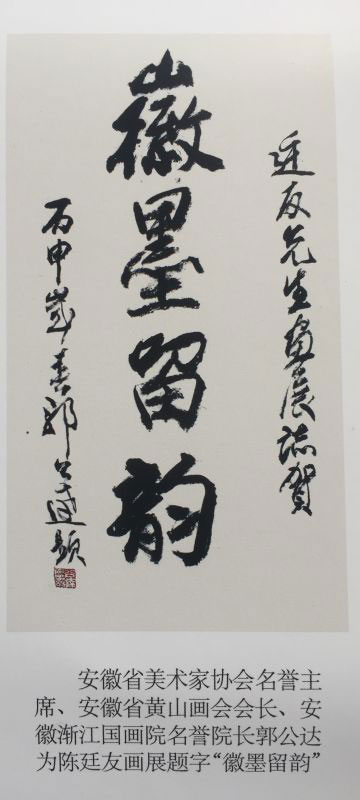 廷友先生画展志贺
徽墨留韵
丙申岁春郭公达题
安徽省美术家协会名誉主
席、安徽省黄山画会会长、安
徽渐江国画院名誉院长郭公达
为陈廷友画展题字“徽墨留韵”